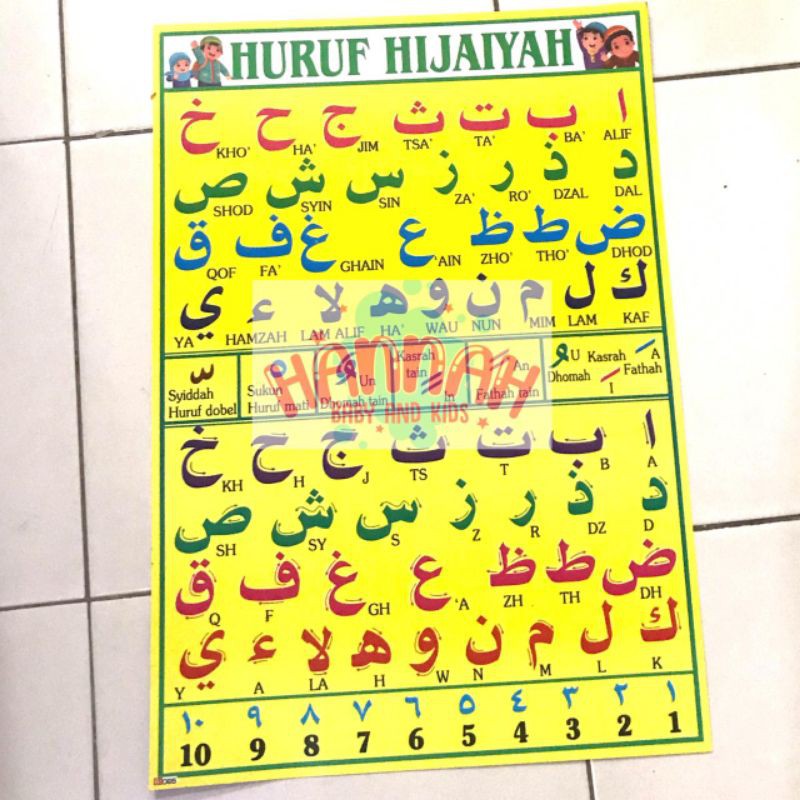 HURUF HIJAIYAH
ا ب ت ث ج ح خ
ALIF BA' TA' TSA' JIM HA' KHO'
د ذ ر ز س ش ص
DAL DZAL RO' ZA' SIN SYIN SHOD
ض ط ظ ع غ ف ق
DHOD THO' ZHO' 'AIN GHAIN FA' QOF
ك ل م ن و ه لا ء ي
KAF LAM MIM NUN WAU HA' LAM ALIF HAMZAH YA
A Fathah
Kasrah I
U Dhomah
An Fathah tain
Kasrah tain In
Un Dhomah tain
Sukun Huruf mati
Syiddah Huruf dobel
HANNAH
BABY AND KIDS
ا ب ت ث ج ح خ
A B T TS J H KH
د ذ ر ز س ش ص
D DZ R Z S SY SH
ض ط ظ ع غ ف ق
DH TH ZH 'A GH F Q
ك ل م ن و ه لا ء ي
K L M N W H LA A Y
١ ٢ ٣ ٤ ٥ ٦ ٧ ٨ ٩ ١٠
1 2 3 4 5 6 7 8 9 10